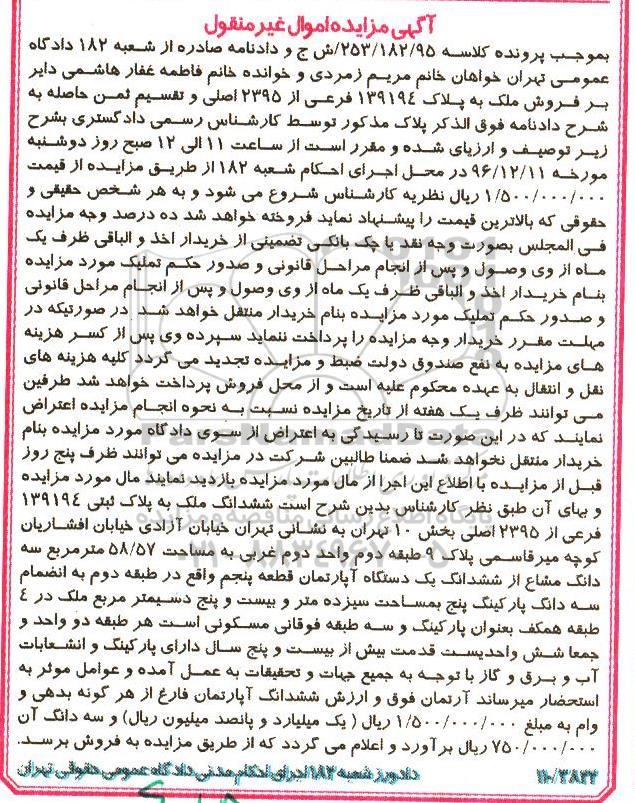 آگهی مزایده اموال غیر منقول
بموجب پرونده کلاسه ۲۵۳/۱۸۲/۹۵/ش ج و دادنامه صادره از شعبه ۱۸۲ دادگاه
عمومی تهران خواهان خانم مریم زمردی و خوانده خانم فاطمه غفار هاشمی دایر
بر فروش ملک به پلاک ۱۳۹۱۹۴ فرعی از ۲۳۹۵ اصلی و تقسیم ثمن حاصله به
شرح دادنامه فوق الذکر پلاک مذکور توسط کارشناس رسمی دادگستری بشرح
زیر توصیف و ارزیای شده و مقرر است از ساعت ۱۱ الی ۱۲ صبح روز دوشنبه
مورخه ۹۶/۱۲/۱۱ در محل اجرای احکام شعبه ۱۸۲ از طریق مزایده از قیمت
۱/۵۰۰/۰۰۰/۰۰۰ ریال نظریه کارشناس شروع می شود و به هر شخص حقیقی و
حقوقی که بالاترین قیمت را پیشنهاد نماید فروخته خواهد شد ده درصد وجه مزایده
فی المجلس بصورت وجه نقد یا چک بانکی تضمینی از خریدار اخذ و الباقی ظرف یک
ماه از وی وصول و پس از انجام مراحل قانونی و صدور حکم تملیک مورد مزایده
بنام خریدار اخذ و الباقی ظرف یک ماه از وی وصول و پس از انجام مراحل قانونی
و صدور حکم تملیک مورد مزایده بنام خریدار منتقل خواهد شد. در صورتیکه در
مهلت مقرر خریدار وجه مزایده را پرداخت ننماید سپرده وی پس از کسر هزینه
های مزایده به نفع صندوق دولت ضبط و مزایده تجدید می گردد کلیه هزینه های
نقل و انتقال به عهده محکوم علیه است و از محل فروش پرداخت خواهد شد طرفین
می توانند ظرف یک هفته از تاریخ مزایده نسبت به نحوه انجام مزایده اعتراض
نمایند که در این صورت تا رسیدگی به اعتراض از سوی دادگاه مورد مزایده بنام
خریدار منتقل نخواهد شد ضمنا طالبین شرکت در مزایده می توانند ظرف پنج روز
قبل از مزایده با اطلاع این اجرا از مال مورد مزایده بازدید نمایند مال مورد مزایده
و بهای آن طبق نظر کارشناس بدین شرح است ششدانگ ملک به پلاک ثبتی ۱۳۹۱۹۴
فرعی از ۲۳۹۵ اصلی بخش ۱۰ تهران به نشانی تهران خیابان آزادی خیابان افشاریان
کوچه میرقاسمی پلاک ۹ طبقه دوم واحد دوم غربی به مساحت ۵۸/۵۷ مترمربع سه
دانگ مشاع از ششدانگ یک دستگاه آپارتمان قطعه پنجم واقع در طبقه دوم به انضمام
سه دانگ پارکینگ پنج بمساحت سیزده متر و بیست و پنج دسیمتر مربع ملک در ۴
طبقه همکف بعنوان پارکینگ و سه طبقه فوقانی مسکونی است هر طبقه دو واحد و
جمعا شش واحدیست قدمت بیش از بیست و پنج سال دارای پارکینگ و انشعابات
آب و برق و گاز با توجه به جمیع جهات و تحقیقات به عمل آمده و عوامل موثر به
استحضار میرساند آرتمان فوق و ارزش ششدانگ آپارتمان فارغ از هر گونه بدهی و
وام به مبلغ ۱/۵۰۰/۰۰۰/۰۰۰ ریال ( یک میلیارد و پانصد میلیون ریال) و سه دانگ آن
۷۵۰/۰۰۰/۰۰۰ ریال برآورد و اعلام می گردد که از طریق مزایده به فروش برسد.
۱۱۰/۳۸۲۲ دادورز شعبه ۱۸۲ اجرای احکام مدنی دادگاه عمومی حقوقی تهران
ParsNamadData
پایگاه اطلاع رسانی مناقصه و مزایده
۰۲۱-۸۸۳۴۹۶۷۰-۵